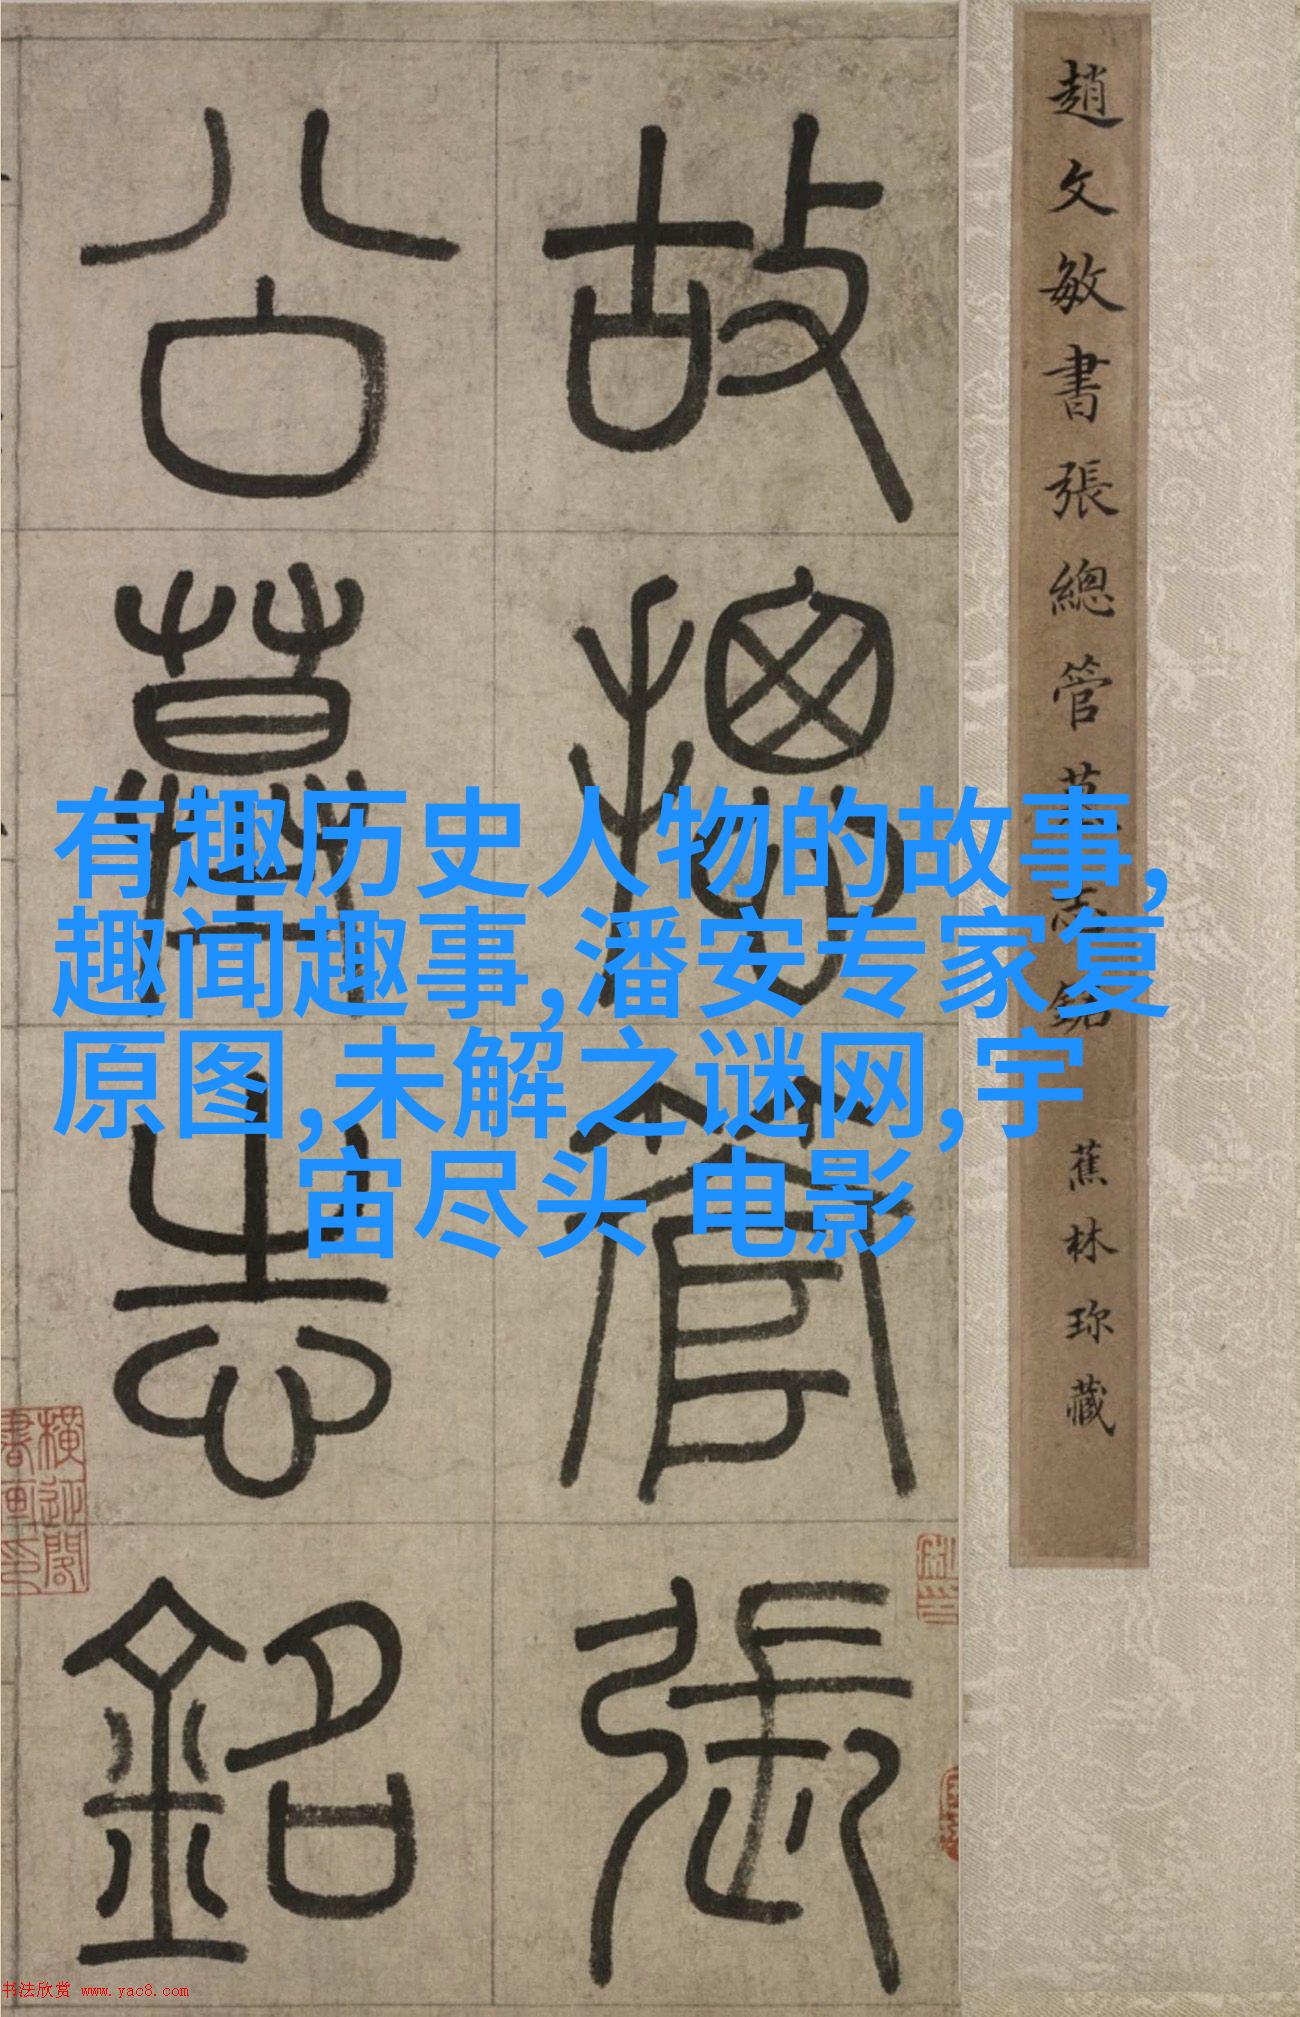 趙文敏書張總管墓志銘 蕉林珍藏
故總管張
公墓志銘
有趣历史人物的故事,
趣闻趣事,潘安专家复
原图,未解之谜网,宇
宙尽头 电影
书法欣赏 www.yac8.com